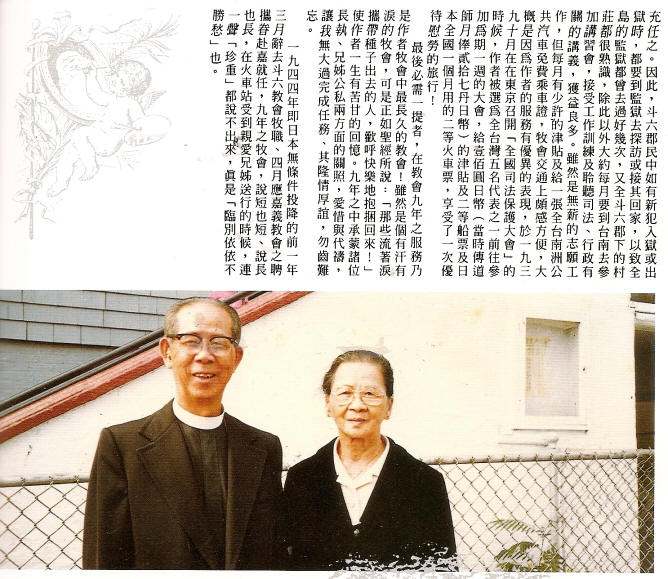 充任之。因此，斗六郡民中如有新犯入獄或出
獄時，都要到監獄去探訪或接其回家，以致全
島的監獄都曾去過好幾次，又全斗六郡下的村
莊都很熟識，除此以外大約每月要到台南去參
加講習會，接受工作訓練及聆聽司法、行政有
關的講義，獲益良多。雖然是無薪的志願工
作，但每月有少許的津貼及給一張全台南洲公
共汽車免費乘車證，牧會交通上頗感方便，大
概是因爲作者的服務有優異的表現，於一九三
九十月在在東京召開「全國司法保護大會」的
時候，作者被選爲全台灣五名代表之一前往參
加爲期一週的大會，給壹佰圓日幣（當時傳道
師月俸貳拾七丹日幣）的津貼及二等船票及日
本全國一個月用的二等火車票，享受了一次優
待慰勞的旅行！
最後必需一提者，在教會九年之服務乃
是作者牧會中最長久的教會！雖然是個有汗有
淚的牧會，可是正如聖經所說：「那些流著淚
攜帶種子出去的人，歡呼快樂地抱捆回來！」
使作者一生有苦甘的回憶。九年之中承蒙諸位
長執、兄姊公私兩方面的關照，愛惜與代禱，
讓我無大過完成任務、其隆情厚誼，勿齒難
忘。
一九四四年即日本無條件投降的前一年
三月辭去斗六教會牧職、四月應嘉義教會之聘
攜眷赴嘉就任，九年之牧會，說短也短、說長
也長，在火車站受到親愛兄姊送行的時候，連
一聲「珍重」都說不出來，眞是「臨別依依不
勝愁」也。